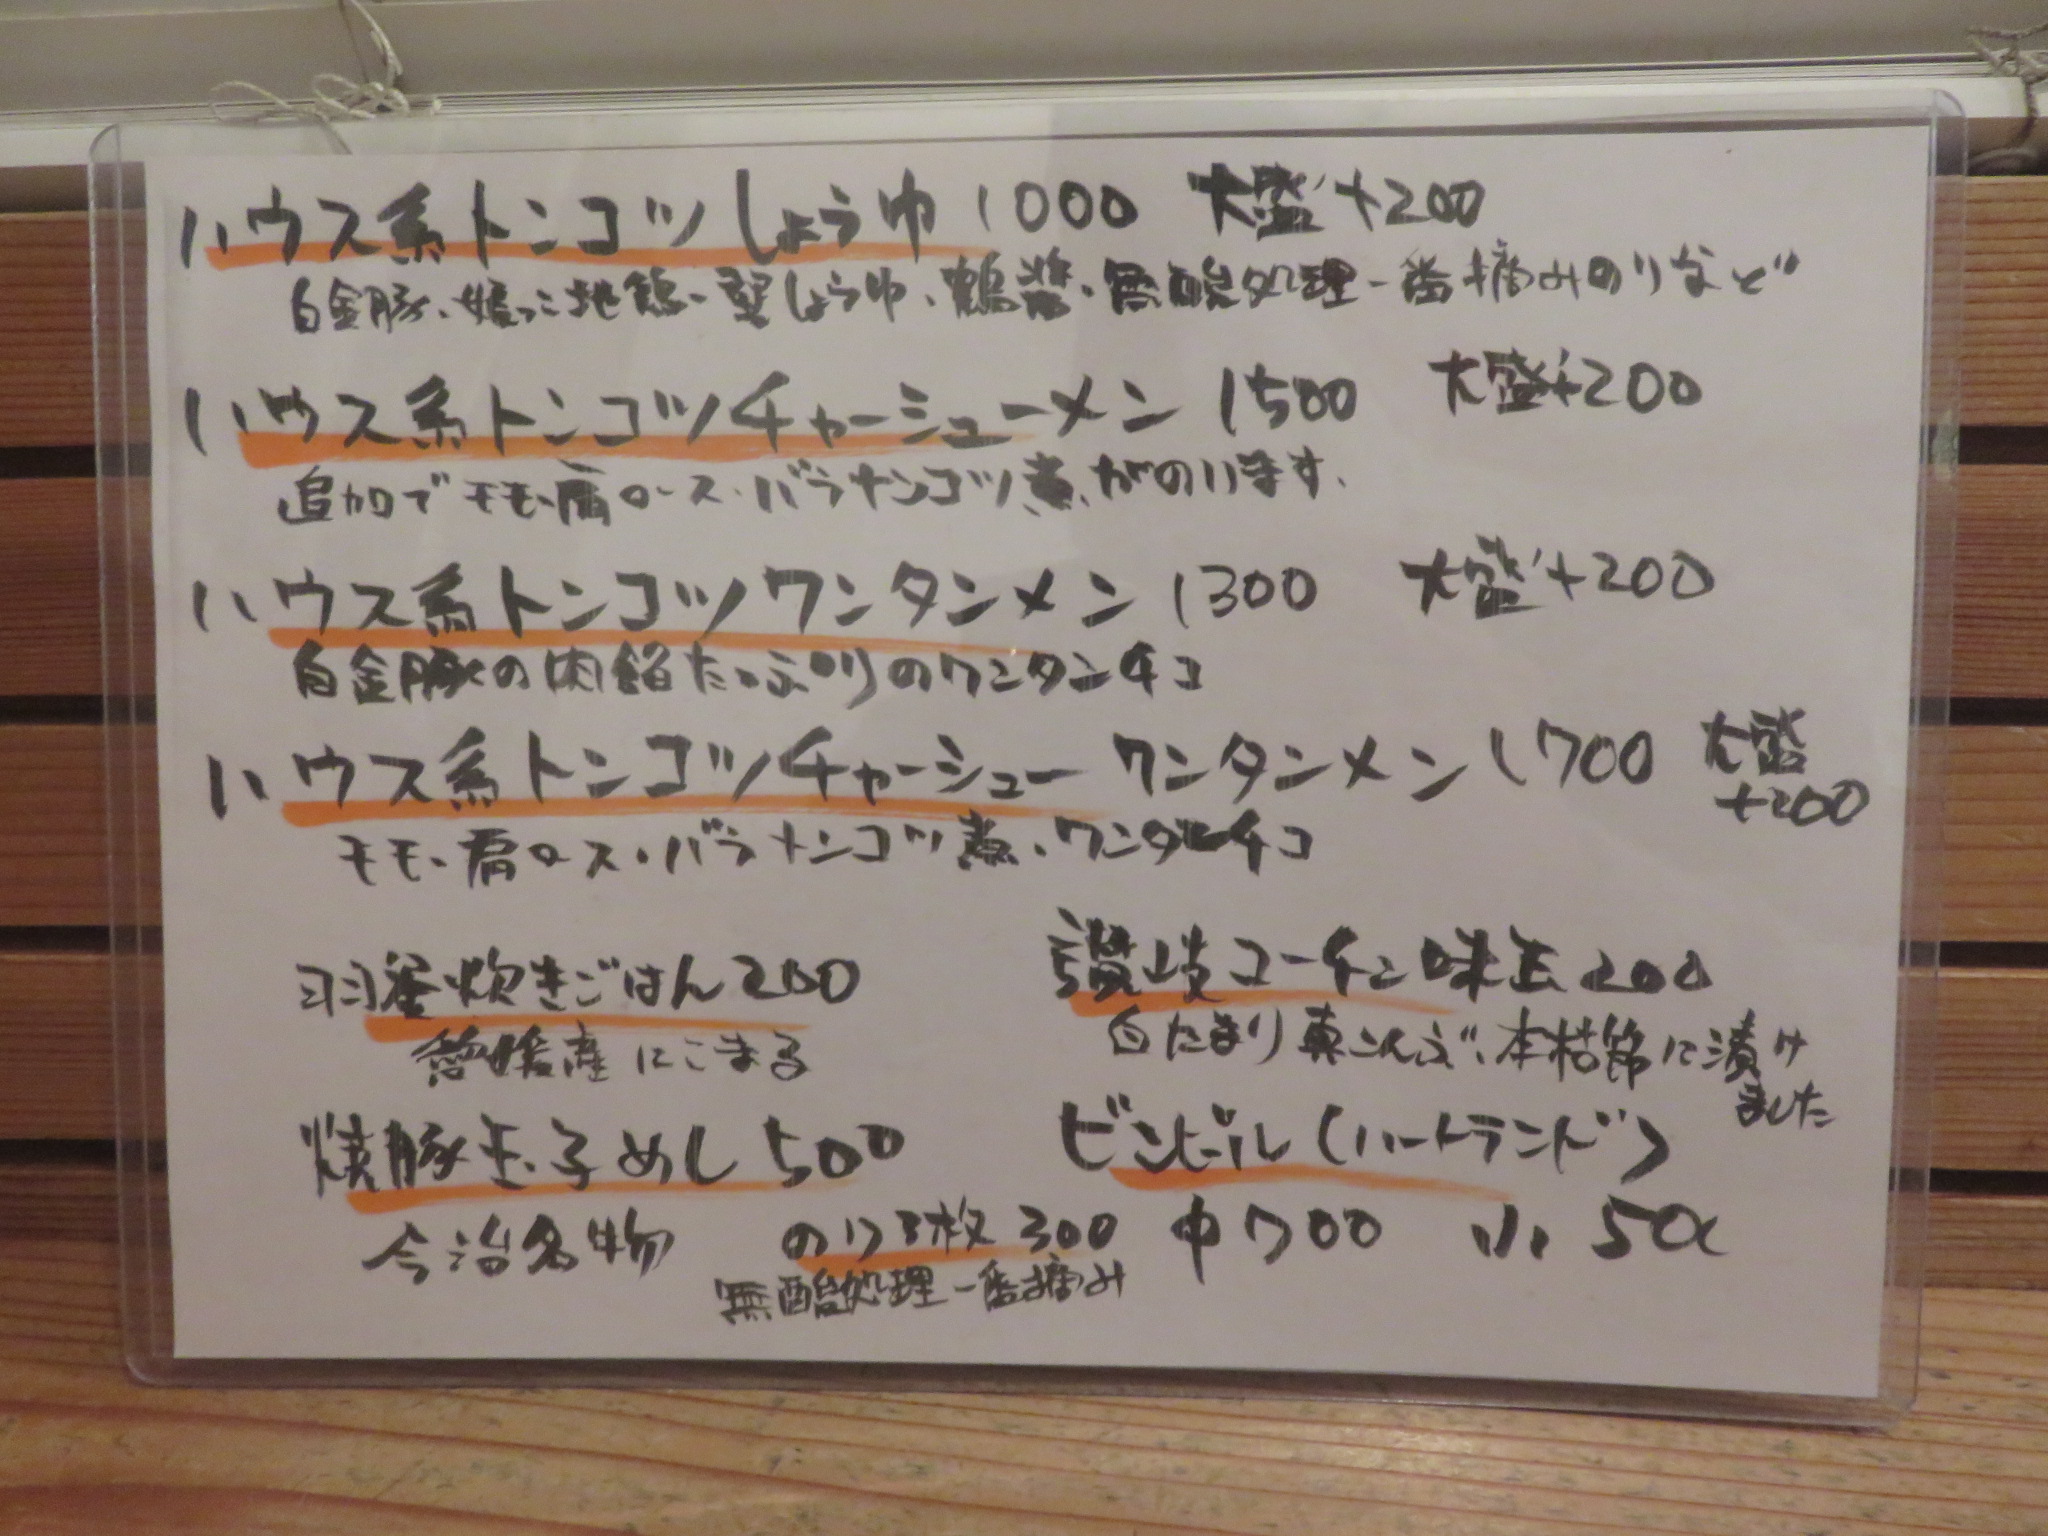 ハウス系トンコツしょうゆ 1000 大盛+200
白金豚、媛っこ地鶏、しょうゆ、鶴醬、無酸処理一番摘みのりなど
ハウス系トンコツチャーシューメン 1500 大盛+200
追加でモモ、肩ロース、バラナンコツ煮、がのります。
ハウス系トンコツワンタンメン 1300 大盛+200
白金豚の肉餡たっぷりのワンタンチコ
ハウス系トンコツチャーシューワンタンメン 1700 大盛
+200
モモ、肩ロース、バラナンコツ煮、ワンタンチコ
羽釜炊きごはん 200
愛媛産にこまる
讃岐コーチン味玉 200
白たまり真こんぶ、本枯節に漬け
ました
焼豚玉子めし 500
今治名物
のり3枚 300
無酸処理一番摘み
ビンビール(ハートランド)
中700 小500